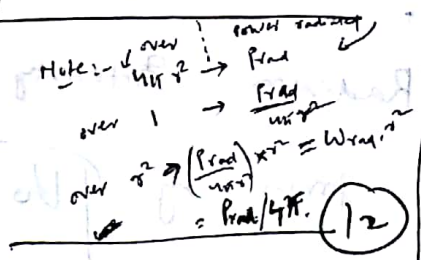 over power radiated
Note:- ↓ 4π r² → Prad
over 1 → Prad/4πr²
over r² → (Prad/4πr²) × r² = Wrad. r²
= Prad/4π. 12